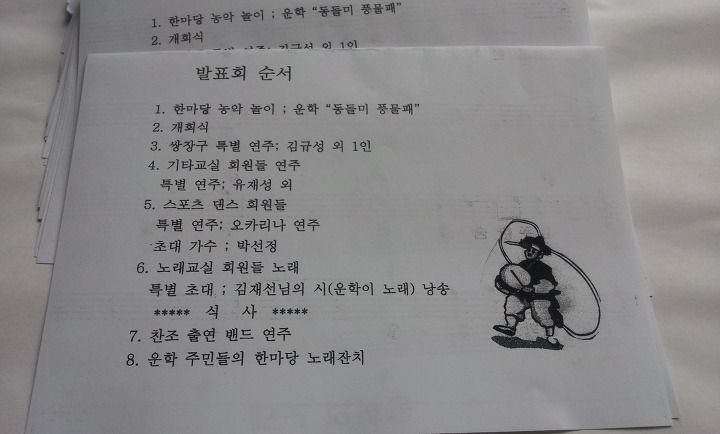 1. 한마당 농악 놀이 ; 운학 “동들미 풍물패”
2. 개회식
발표회 순서
1. 한마당 농악 놀이 ; 운학 “동들미 풍물패”
2. 개회식
3. 쌍장구 특별 연주; 김규성 외 1인
4. 기타교실 회원들 연주
특별 연주; 유재성 외
5. 스포츠 댄스 회원들
특별 연주; 오카리나 연주
초대 가수 ; 박선정
6. 노래교실 회원들 노래
특별 초대 ; 김재선님의 시(운학이 노래) 낭송
***** 식 사 *****
7. 찬조 출연 밴드 연주
8. 운학 주민들의 한마당 노래잔치